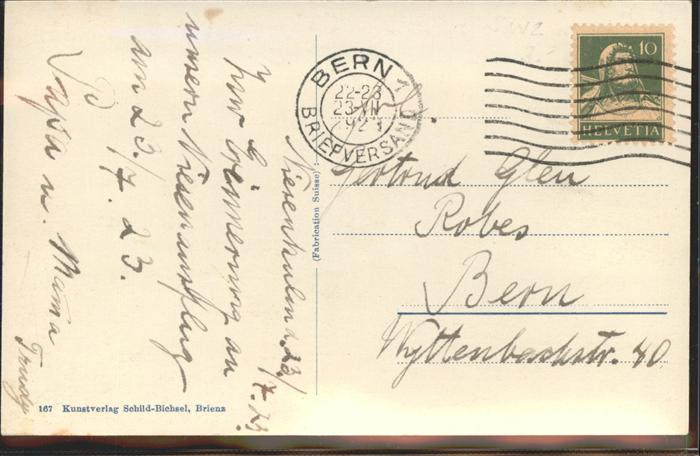 Niesenkulm d. 23/7. 23.
Zur Erinnerung an
unsern Niesenausflug
am 23./7. 23.
Papa u. Mama
Trudy
167 Kunstverlag Schild-Bichsel, Brienz
(Fabrication Suisse)
BERN 1
22-23
23. VII
192
BRIEFVERSAND
10
HELVETIA
Gertrud Glen
Robes
Bern
Wyttenbachstr. 40